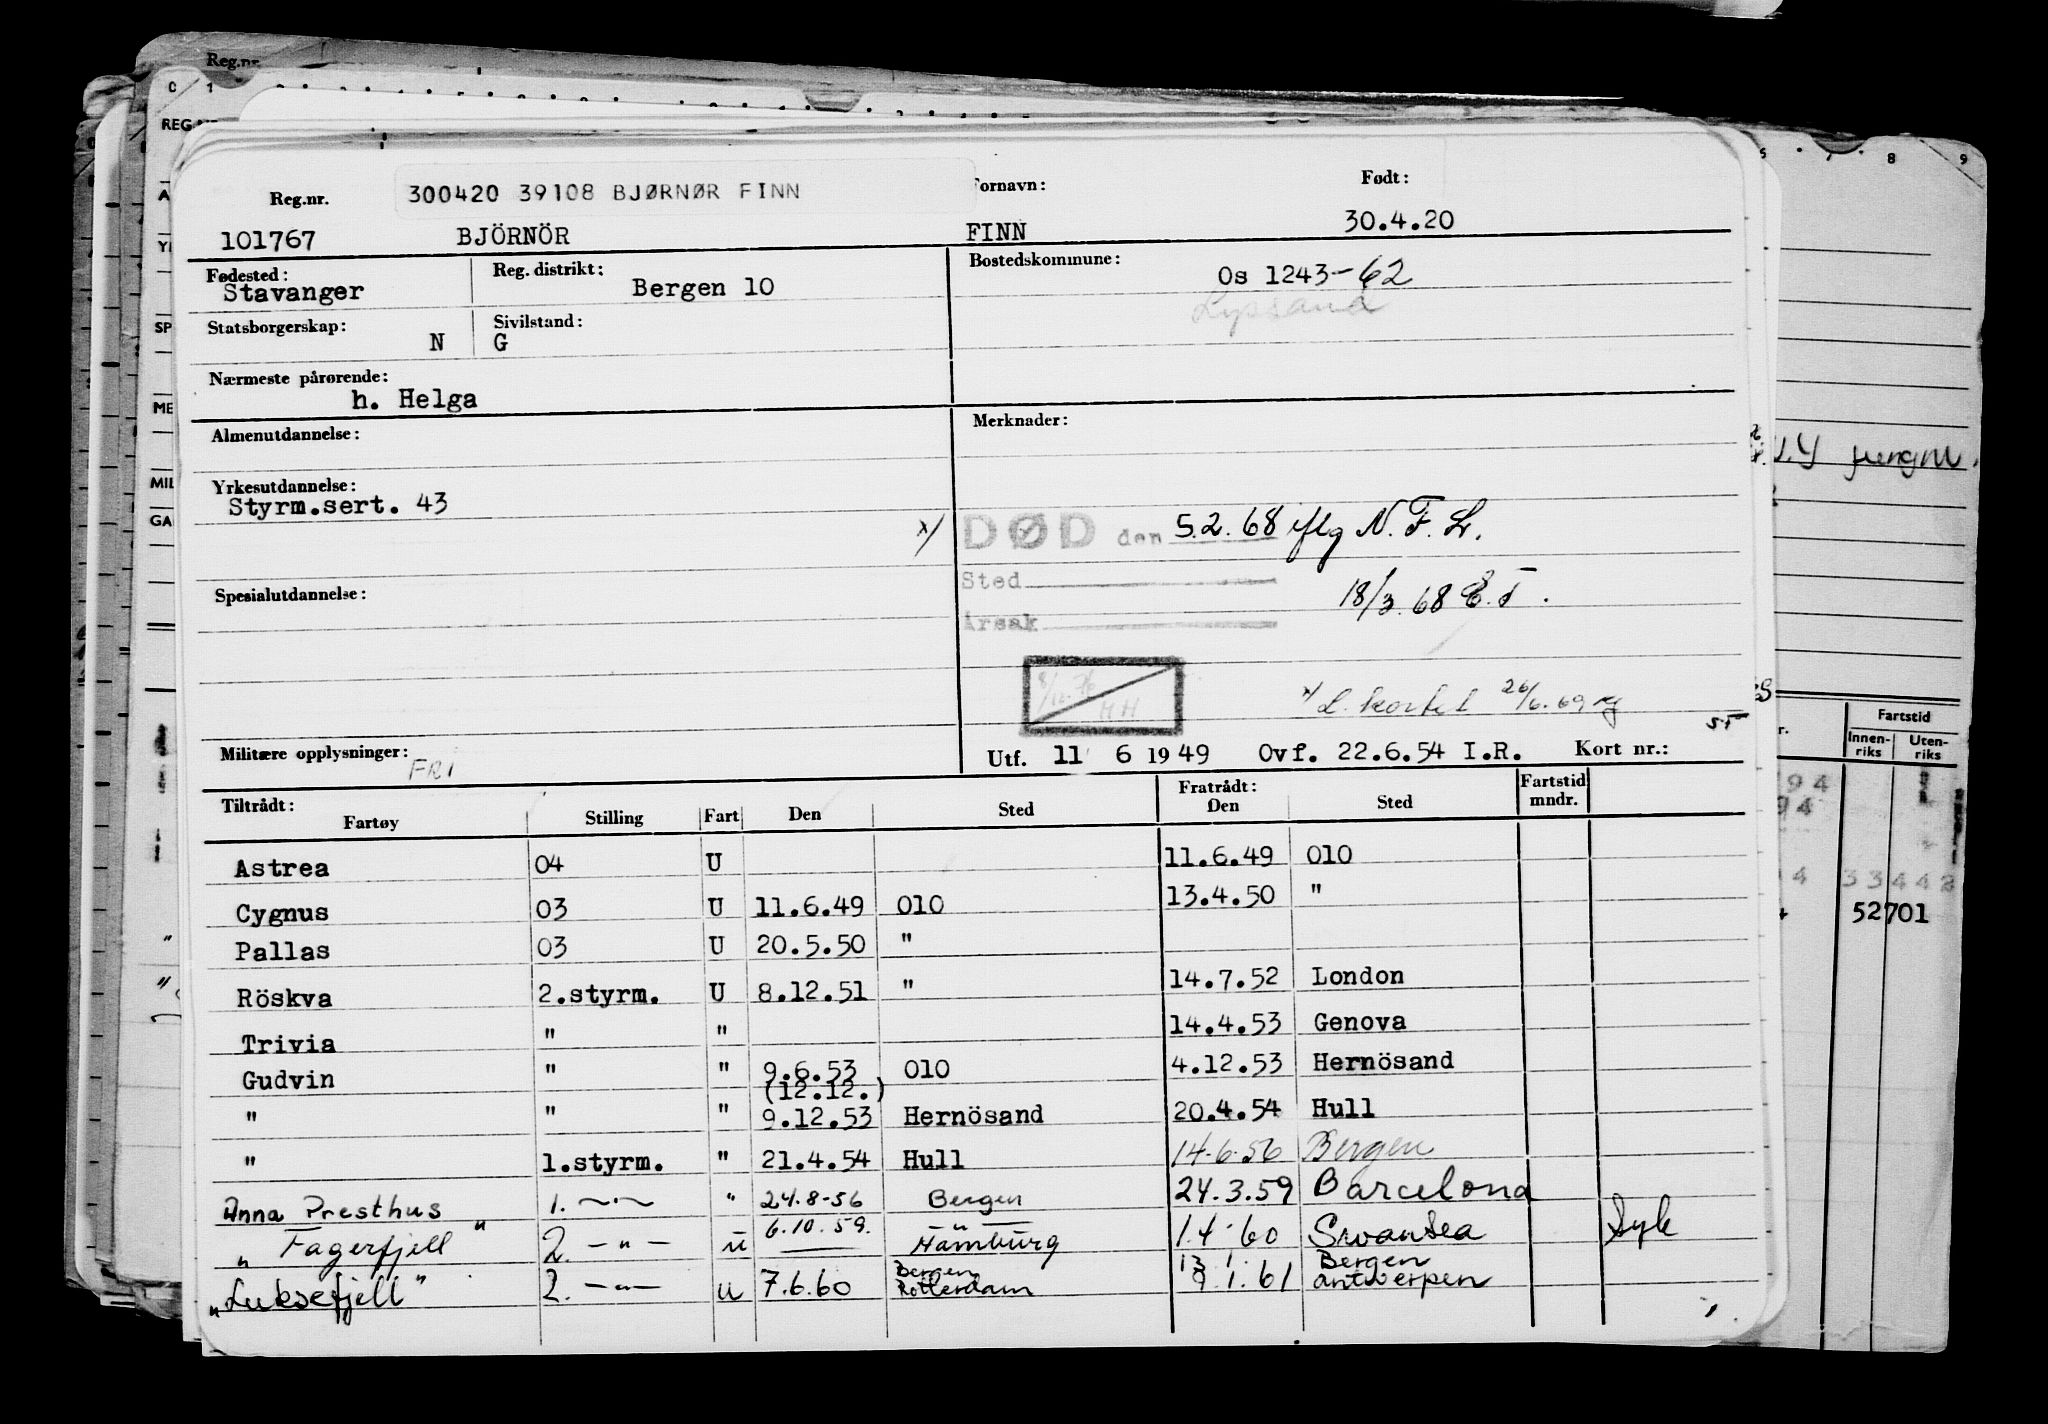 Reg.nr.
C 1
REG.NR.
300420 39108 BJØRNØR FINN
Reg.nr. Fornavn: Født:
101767 BJÖRNÖR FINN 30.4.20
Fødested: Reg. distrikt: Bostedskommune:
Stavanger Bergen 10 Os 1243-62
Lyssand
Statsborgerskap: Sivilstand:
N G
Nærmeste pårørende:
h. Helga
Almenutdannelse: Merknader:
Yrkesutdannelse:
Styrm.sert. 43
x/ DØD den 5.2.68 iflg N.F.L.
Sted
18/3.68 E.T.
Årsak
Spesialutdannelse:
8/12.76 HH
x/ L. kortet 26/6.69
Militære opplysninger: FRI
Utf. 11 6 1949 Ovf. 22.6.54 I.R. Kort nr.:
Tiltrådt: Fratrådt: Fartstid
Fartøy Stilling Fart Den Sted Den Sted mndr.
Astrea 04 U 11.6.49 010
Cygnus 03 U 11.6.49 010 13.4.50 "
Pallas 03 U 20.5.50 "
Röskva 2.styrm. U 8.12.51 " 14.7.52 London
Trivia " " 14.4.53 Genova
Gudvin " " 9.6.53 010 4.12.53 Hernösand
(12.12.)
" " " 9.12.53 Hernösand 20.4.54 Hull
" 1.styrm. " 21.4.54 Hull 14.6.56 Bergen
Anna Presthus 1. —"— " 24.8-56 Bergen 24.3.59 Barcelona
" Fagerfjell " 2. —"— u 6.10.59. Hamburg 1.4-60 Swansea Syk
Bergen 13 1 Bergen
"Luksefjell" 2. —"— u 7.6.60 Rotterdam 9.1.61 antwerpen
8 9
N.Y jungm.
Fartstid
Innen-riks Uten-riks
94
94
4 33442
52701